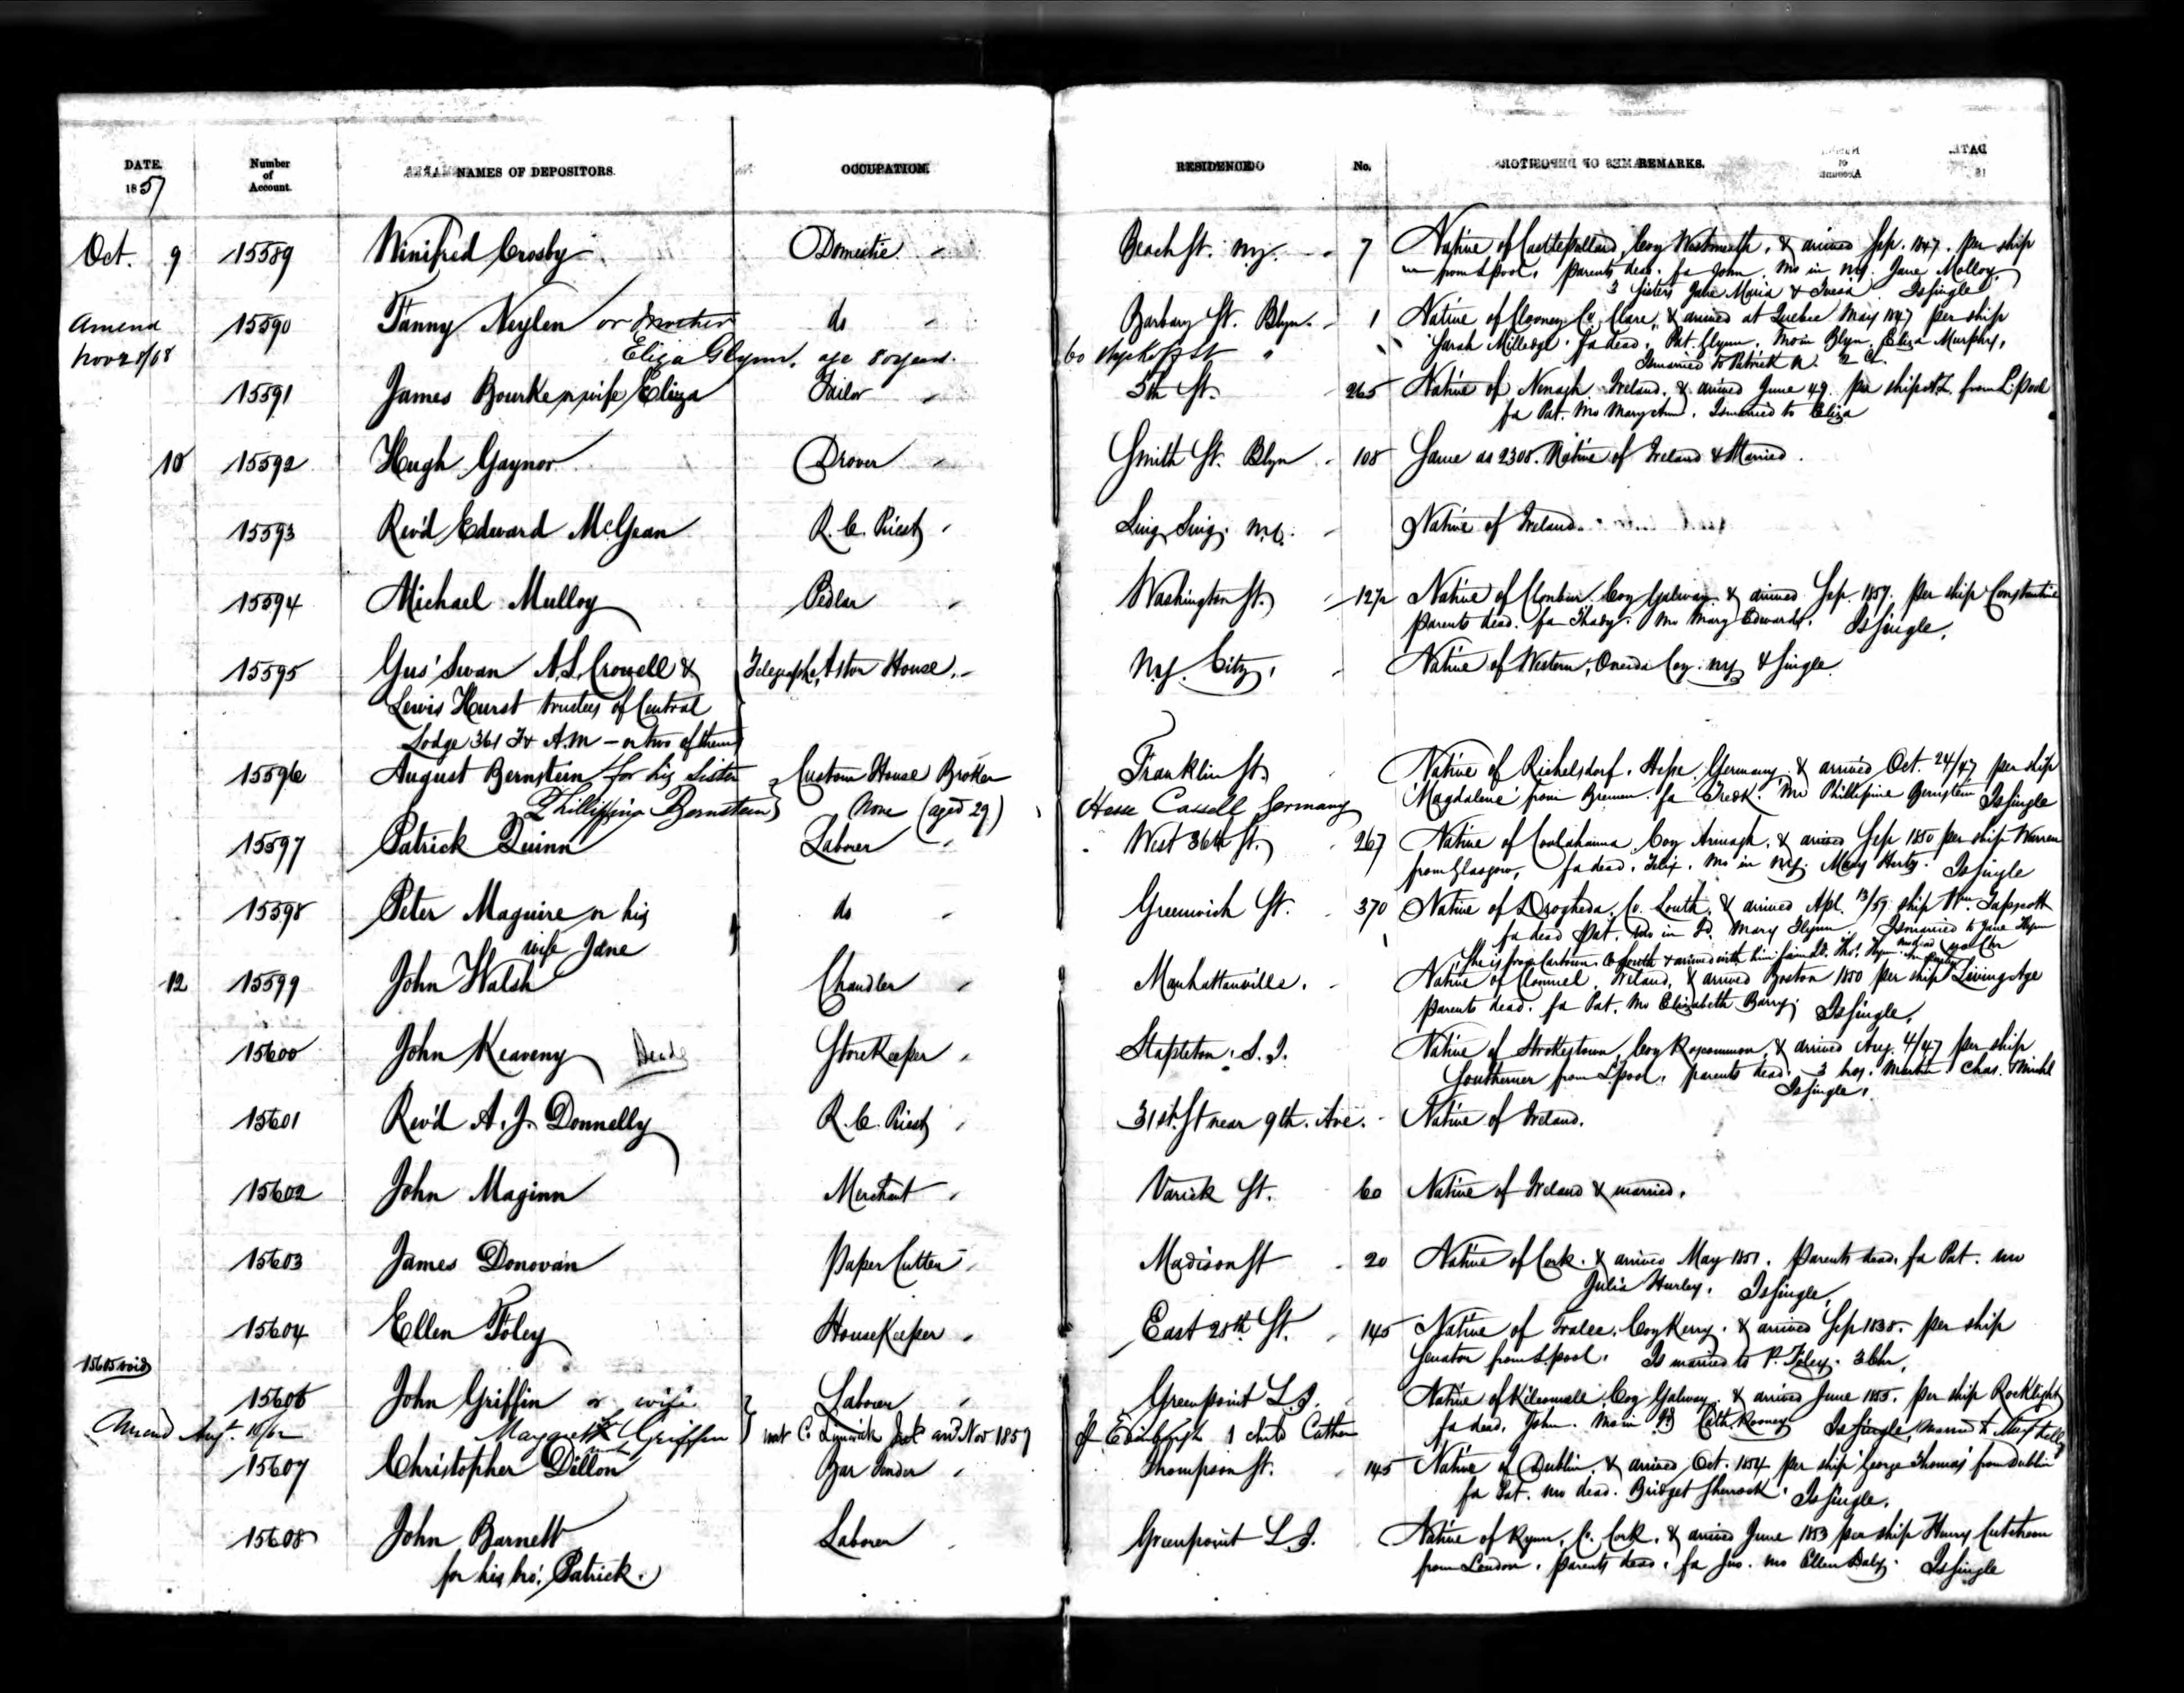 DATE. Number of Account. NAMES OF DEPOSITORS. OCCUPATION. RESIDENCE No. REMARKS.
1857
Oct. 9 15589 Winifred Crosby Domestic Beach St. N.Y. 7 Native of Castlepollard, Coy Westmeath, & arrived Sep. 1847. per ship
from Lpool, parents dead. fa John. mo in N.Y. Jane Molloy,
3 sisters Julia Maria & Is single
15590 Fanny Neylen or Mother do Barbary St. Blyn. 1 Native of Clooney Co. Clare, & arrived at Quebec May 1847 per ship
Amend Nov 28/68 Eliza Glynn. age 80 years. 60 St " Sarah Milledge. fa dead, Pat. Glynn, mo in Blyn. Eliza Murphy,
Is married to Patrick N. 2 C.
15591 James Bourke or wife Eliza Tailor 5th St. 265 Native of Nenagh Ireland, & arrived June 49. per ship from L:pool
fa Pat. mo Mary Ann. Is married to Eliza
10 15592 Hugh Gaynor Drover Smith St. Blyn 108 Same as 2308. Native of Ireland & Married.
15593 Rev'd Edward McGean R. C. Priest Sing Sing. N.Y. Native of Ireland.
15594 Michael Mulloy Pedlar Washington St. 127½ Native of Clonbur Coy Galway & arrived Sep. 1857. per ship Constantine
parents dead. fa Thady. mo Mary Edwards. Is single.
15595 Gus' Swan A. S. Crowell & Telegraphs, Astor House. N.Y. City, Native of Western, Oneida Coy. N.Y. & single.
Lewis Hurst trustees of Central
Lodge 361 F & A.M - or two of them
15596 August Bernstein for his Sister Custom House Broker Franklin St. Native of Richelsdorf, Hesse, Germany, & arrived Oct. 24/47 per ship
Phillippina Bernstein None (aged 29) Hesse Cassell Germany 'Magdalene' from Bremen. fa Fredk. Mo Phillipina Bernstein Is single
15597 Patrick Quinn Laborer West 36th St. 267 Native of Coy Armagh, & arrived Sep 1850 per ship Warren
from Glasgow, fa dead, Felix, mo in N.Y. Mary Is single
15598 Peter Maguire or his do Greenwich St. 370 Native of Drogheda, Co. Louth, & arrived Apl. 13/57 ship Wm. Tapscott
wife Jane fa dead Pat. mo in Id. Mary Flynn. Is married to Jane
She is from Co Louth & arrived with him no Chr
12 15599 John Walsh Chandler Manhattanville. Native of Clonmel, Ireland, & arrived Boston 1850 per ship Living Age
parents dead. fa Pat. mo Elizabeth Barry. Is single.
15600 John Keaveny Dead Storekeeper Stapleton, S. I. Native of Strokestown, Coy Roscommon, & arrived Aug. 4/47 per ship
Southerner from L'pool, parents dead. 3 bros. Martin Chas. Michl
Is single.
15601 Rev'd A. J. Donnelly R. C. Priest 31st. St near 9th. Ave. Native of Ireland.
15602 John Maginn Merchant Varick St. 60 Native of Ireland & married.
15603 James Donovan Paper Cutter Madison St 20 Native of Cork. & arrived May 1851. Parents dead. fa Pat. mo
Julia Hurley. Is single.
15604 Ellen Foley HouseKeeper East 28th St. 145 Native of Tralee, Coy Kerry. & arrived Sep 1838. per ship
Senator from Lpool. Is married to P. Foley. 3 Chr.
15605 void
15606 John Griffin or wife Laborer Greenpoint L. I. Native of Coy Galway, & arrived June 1855. per ship Rocklight
Amend Aug. 16/62 Margaret Griffin nat Co Limerick Irel arrd Nov 1857 Sp Edinburgh 1 child Cathen fa dead, John. Mo in Id. Cath. Rooney Is single, married to
15607 Christopher Dillon Bar Tender Thompson St. 145 Native of Dublin, & arrived Oct. 1854 per ship 'George Thomas' from Dublin
fa Pat. mo dead. Bridget Sherrock. Is single.
15608 John Barnett Laborer Greenpoint L. I. Native of Co. Cork. & arrived June 1853 per ship Henry
for his bro: Patrick. from London, parents dead, fa Jno. mo Ellen Daly. Is single